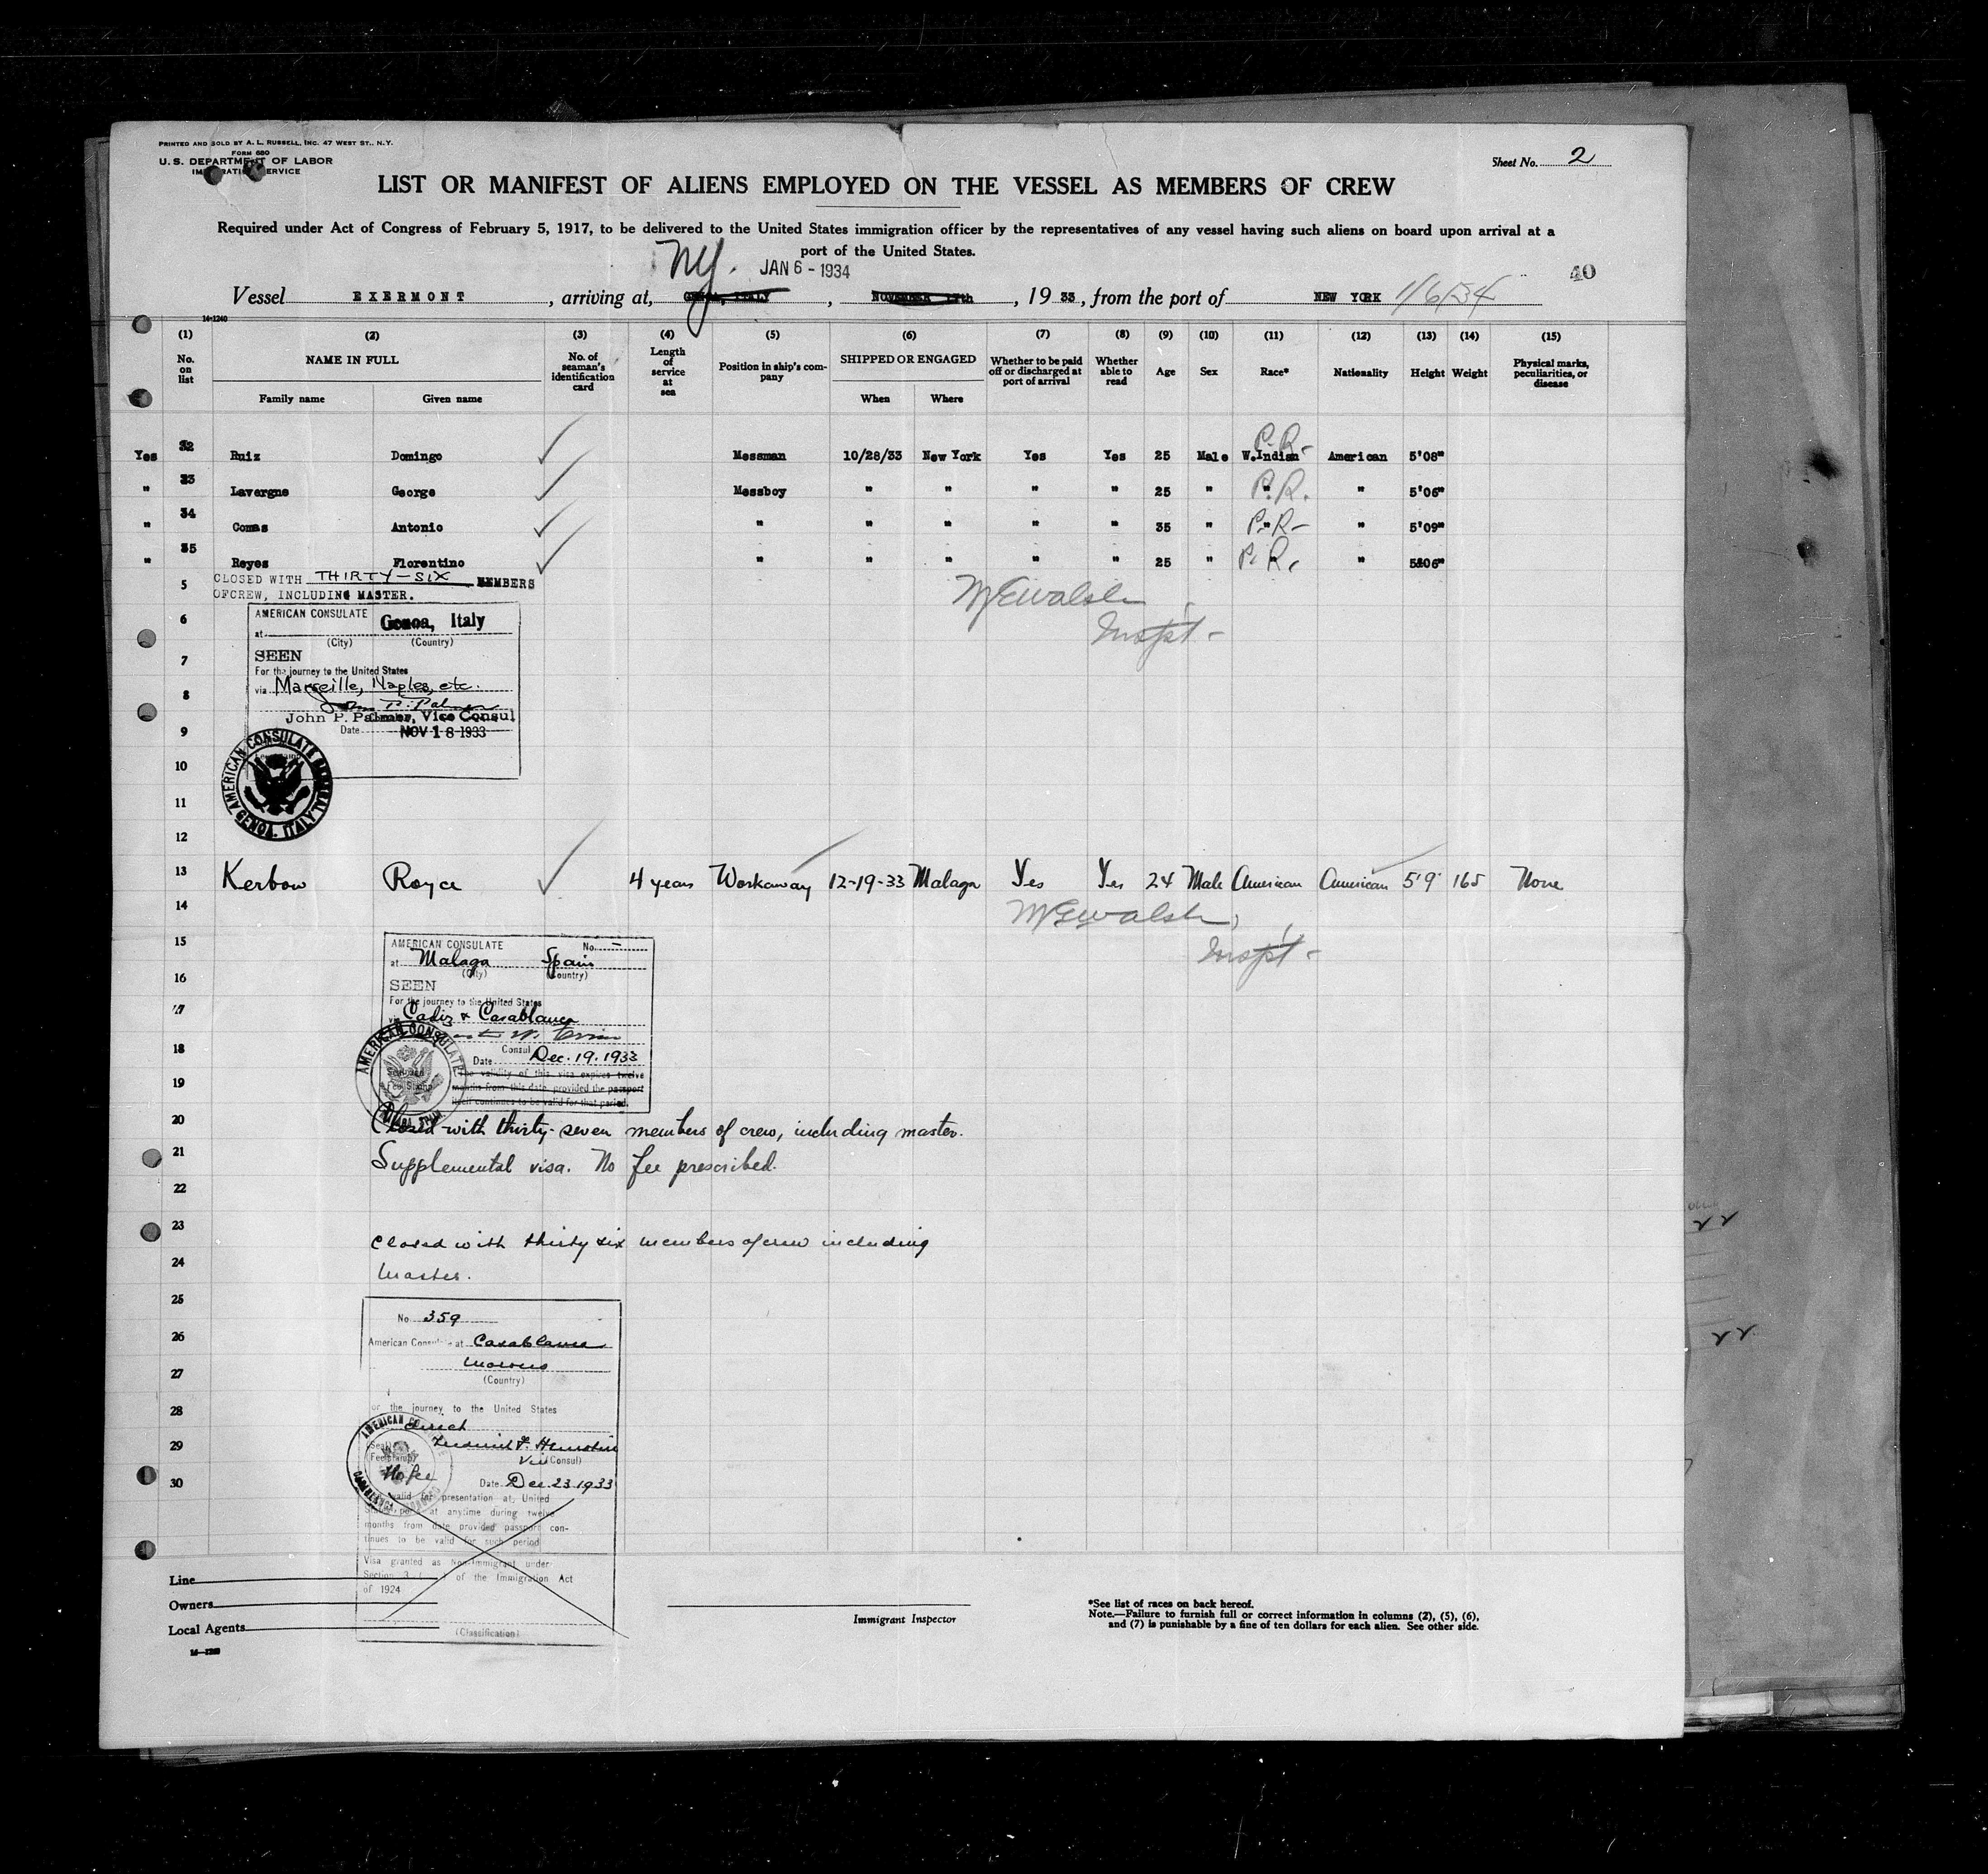 PRINTED AND SOLD BY A. L. RUSSELL, INC. 47 WEST ST., N.Y.
FORM 680
U. S. DEPARTMENT OF LABOR
IMMIGRATION SERVICE
Sheet No. 2
LIST OR MANIFEST OF ALIENS EMPLOYED ON THE VESSEL AS MEMBERS OF CREW
Required under Act of Congress of February 5, 1917, to be delivered to the United States immigration officer by the representatives of any vessel having such aliens on board upon arrival at a
port of the United States.
NY. JAN 6 - 1934
40
Vessel EXERMONT , arriving at, GENOA, ITALY , NOVEMBER 17th , 19 33 , from the port of NEW YORK 1/6/34
14-1240
(1) (2) (3) (4) (5) (6) (7) (8) (9) (10) (11) (12) (13) (14) (15)
No. on list NAME IN FULL No. of seaman's identification card Length of service at sea Position in ship's company SHIPPED OR ENGAGED Whether to be paid off or discharged at port of arrival Whether able to read Age Sex Race* Nationality Height Weight Physical marks, peculiarities, or disease
Family name Given name When Where
P.R.-
Yes 32 Ruiz Domingo Messman 10/28/33 New York Yes Yes 25 Male W.Indian American 5'08"
" 33 Lavergne George Messboy " " " " 25 " " P.R. " 5'06"
" 34 Comas Antonio " " " " " 35 " " P.R- " 5'09"
" 35 Reyes Florentino " " " " " 25 " " P.R. " 5'06"
5 CLOSED WITH THIRTY-SIX MEMBERS
OFCREW, INCLUDING MASTER.
McEwalsh
Inspt-
6 AMERICAN CONSULATE
at Genoa, Italy
(City) (Country)
7 SEEN
For the journey to the United States
8 via Marseille, Naples, etc.
John P. Palmer
John P. Palmer, Vice Consul
9 Date NOV 18 1933
AMERICAN CONSULATE GENERAL GENOA, ITALY
10
11
12
13 Kerbow Royce 4 years Workaway 12-19-33 Malaga Yes Yes 24 Male American American 5'9" 165 None
14 McEwalsh,
Inspt-
15 AMERICAN CONSULATE No. -
at Malaga Spain
(City) (Country)
16 SEEN
For the journey to the United States
17 via Cadiz & Casablanca
18 Consul
Date Dec. 19. 1933
19 The validity of this visa expires twelve
months from this date provided the passport
itself continues to be valid for that period.
AMERICAN CONSULATE
20 Closed with thirty-seven members of crew, including master.
21 Supplemental visa. No fee prescribed.
22
23 Closed with thirty six members of crew including
24 master.
25
No 359
26 American Consulate at Casablanca
Morocco
27 (Country)
28 for the journey to the United States
direct
29 (Seal)
Vice (Consul)
No fee
30 Date Dec 23 1933
valid for presentation at United
States ports at anytime during twelve
months from date provided passport con-
tinues to be valid for such period
Visa granted as Non-Immigrant under
Section 3 ( ) of the Immigration Act
of 1924
(Classification)
Line
Owners
Local Agents
Immigrant Inspector
*See list of races on back hereof.
Note.—Failure to furnish full or correct information in columns (2), (5), (6),
and (7) is punishable by a fine of ten dollars for each alien. See other side.